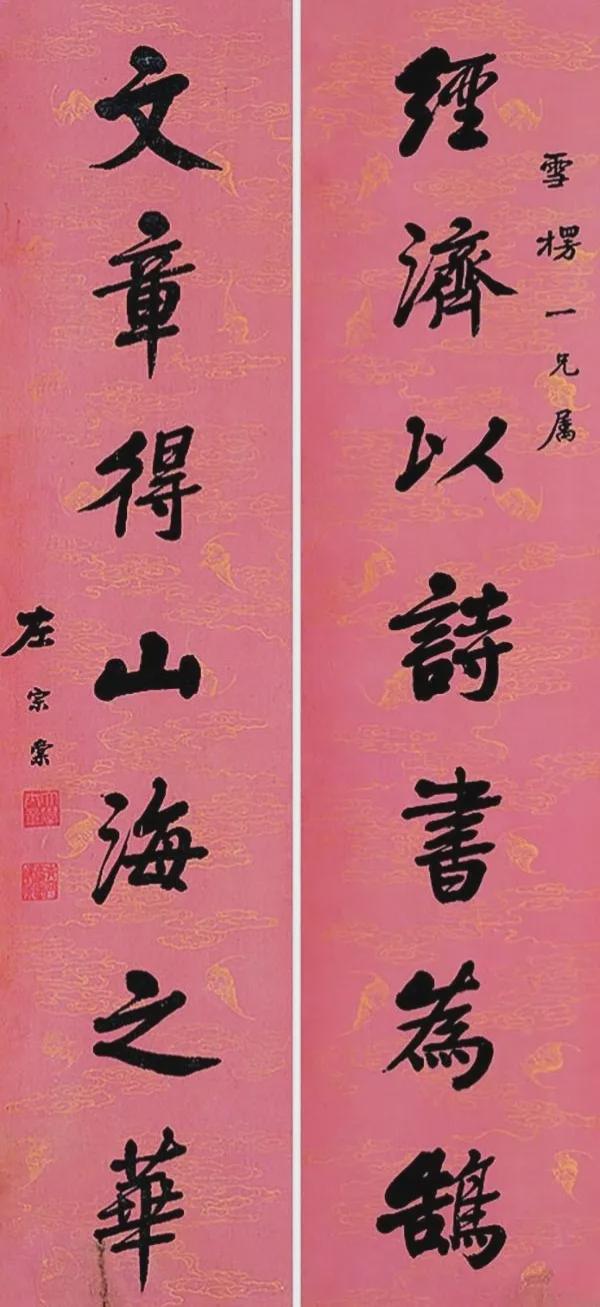 雪楞一兄属
經濟以詩書為鵠
文章得山海之華
左宗棠